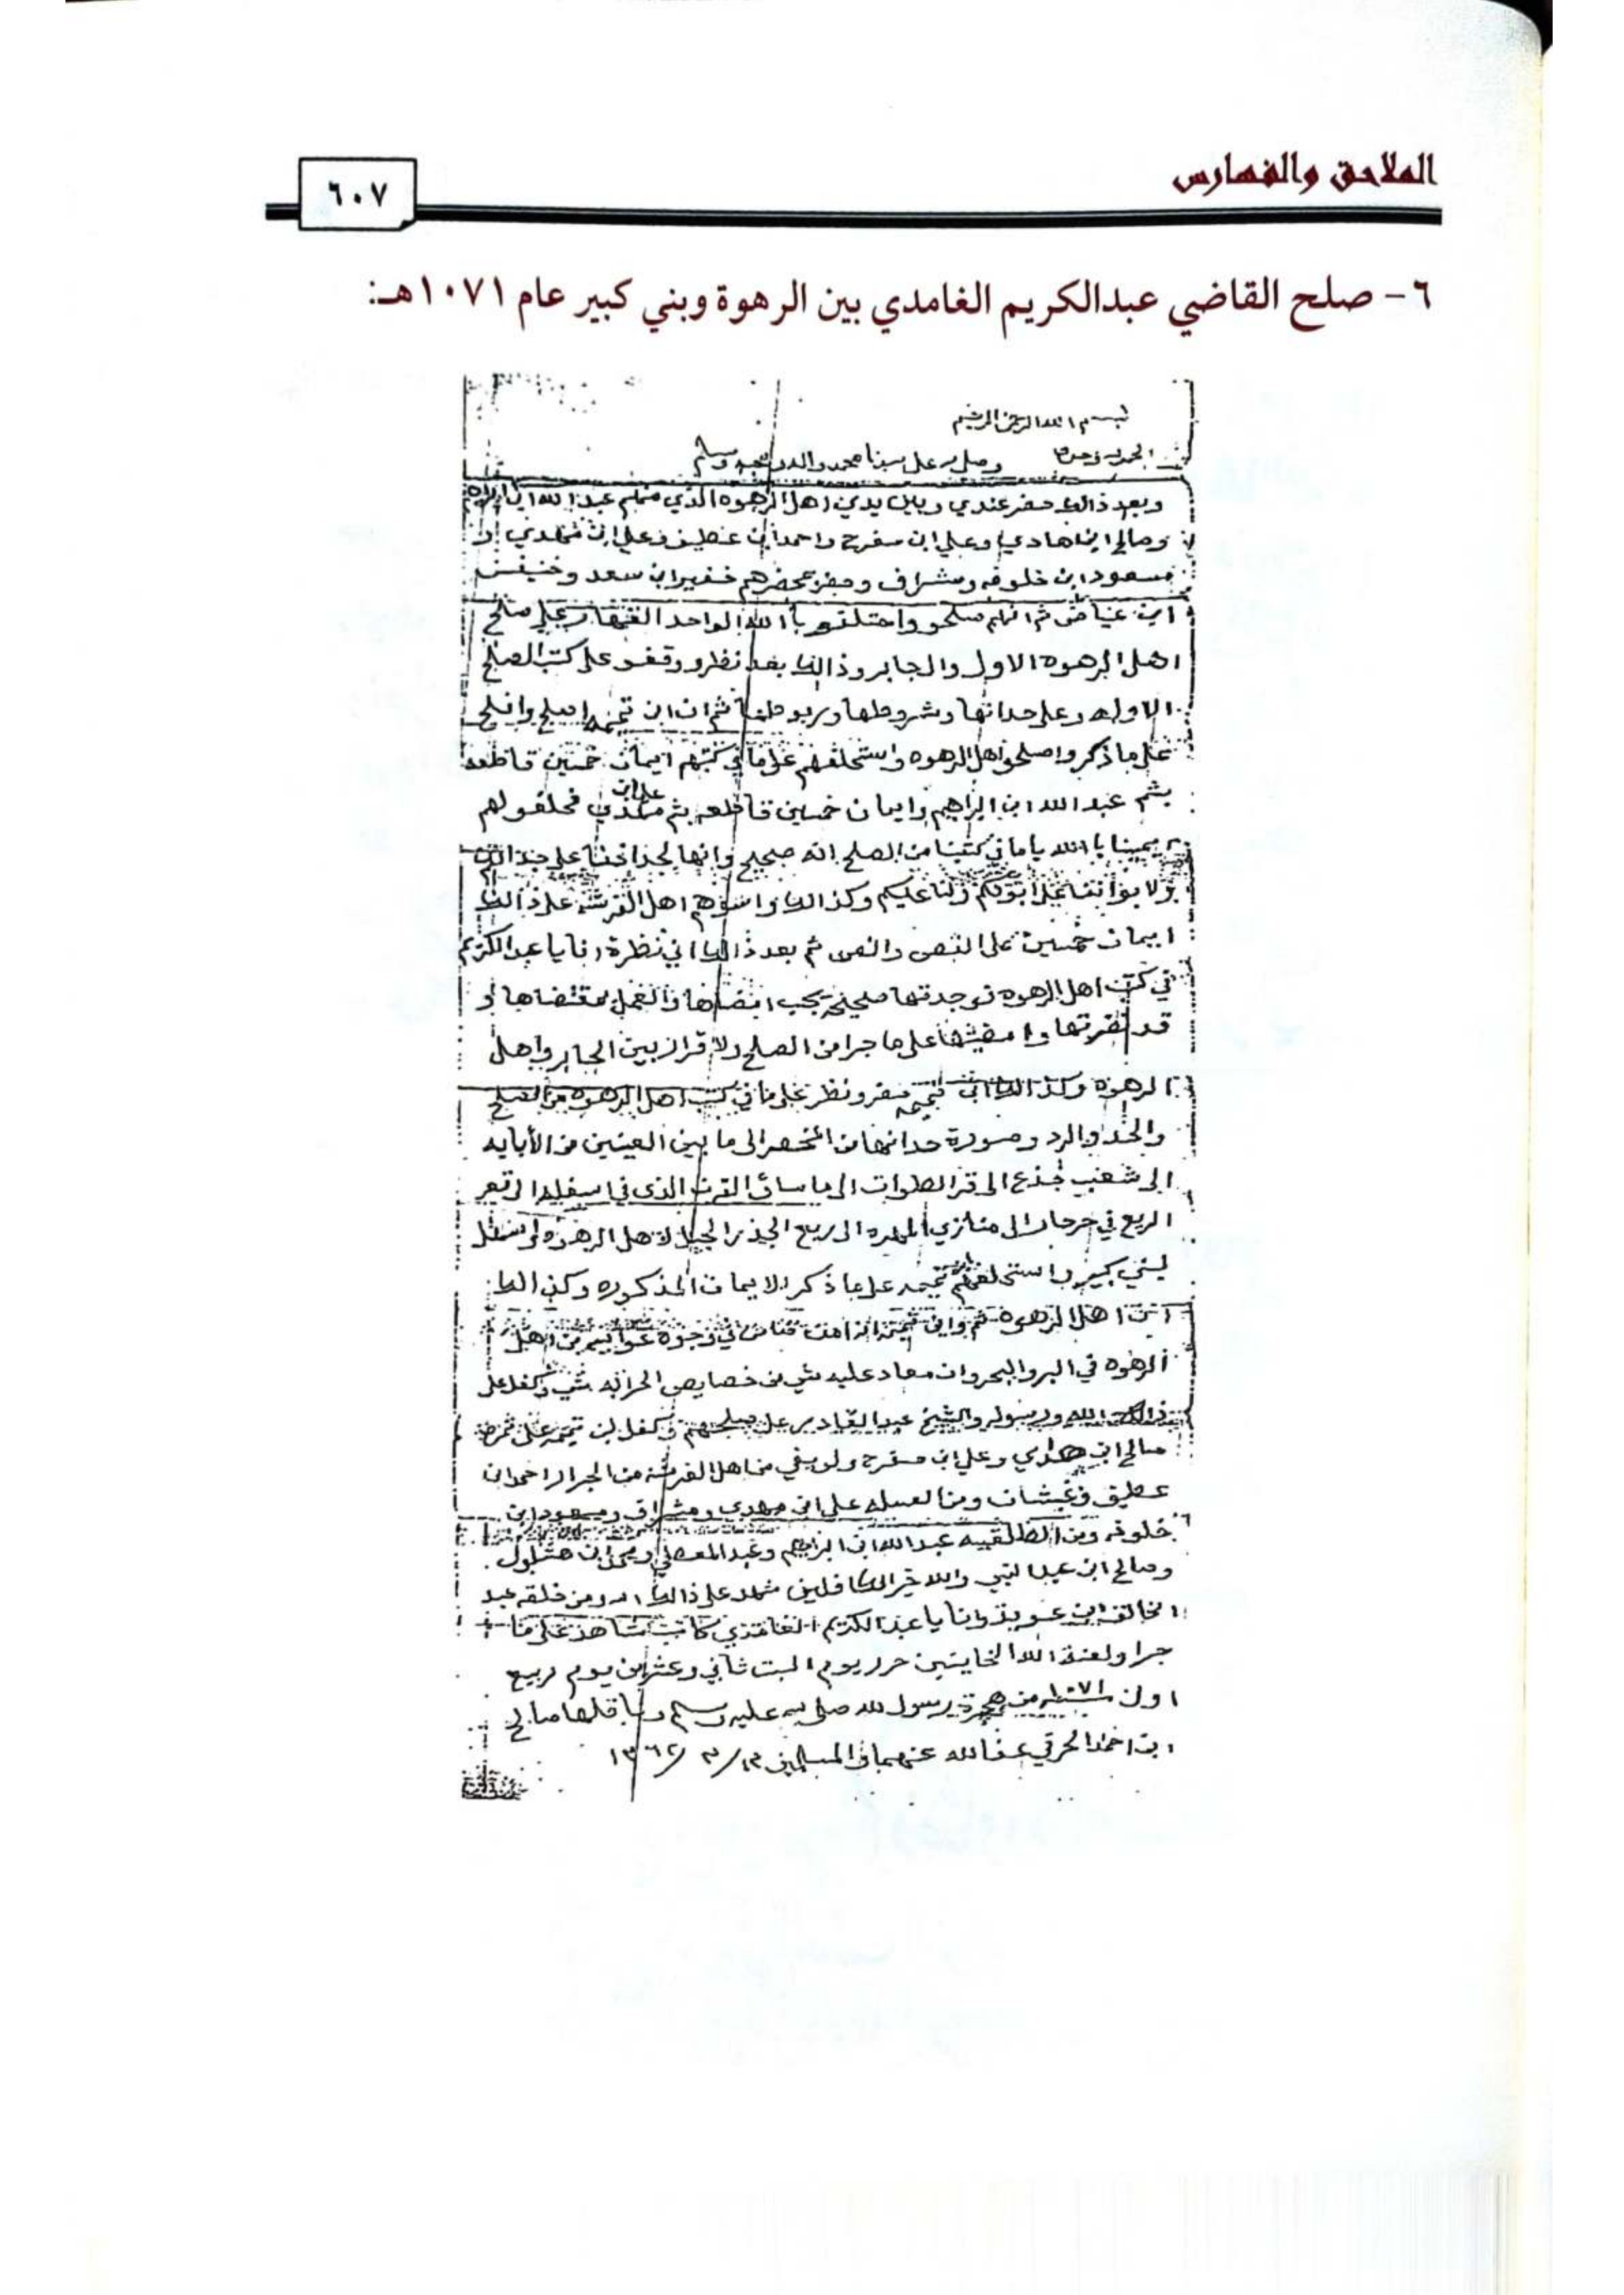 الملاحق والفهارس
٦٠٧
٦- صلح القاضي عبدالكريم الغامدي بين الرهوة وبني كبير عام ١٠٧١هـ:
بسم الله الرحمن الرحيم
الحمد لله وحده وصلى الله على سيدنا محمد واله وصحبه وسلم
وبعد ذالك حضر عندي وبين يدي اهل الرهوه الذي منهم عبد الله ابن ابراهيم
وصالح ابن هادي وعلي ابن مفرح واحمد ابن عطيف وعلي ابن مهدي و
مسعود ابن خلوفه ومشراف وحضر محضرهم خفير ابن سعد وخنيفس
ابن عياض ثم انهم صلحو واحتلفو باالله الواحد القهار على صلح
اهل الرهوه الاول والجابر وذالك بعد نظرو وقفو على كتب الصلح
الاوله وعلى حدانها وشروطها وربوطها ثم ان ابن اصلح وافلح
على ما ذكر واصلحو اهل الرهوه واستحلفهم على ما في كتبهم ايمان خمسين قاطعه
بثم عبد الله ابن ابراهيم وايمان خمسين قاطعه بثم علي ابن مهدي فحلفو لهم
يمينا باالله ياما في كتبنا من الصلح انه صحيح وانها لحداننا على جدانكم
ولا بوابننا على ابوكم ولنا عليكم وكذالك واسوهم اهل القرشه على ذالك
ايمان خمسين على النص والنص ثم بعد ذالك اني نظرة انا يا عبد الكريم
في كتب اهل الرهوه فوجدتها صحيحه يجب امضاها والعمل بمقتضاها و
قد نفرتها وامضيتها على ما جرا من الصلح ولاقرار بين الجابر واهل
الرهوه وكذالك ابن حضر ونظر على ما في كتب اهل الرهوه من الصلح
والحد والرد وصورة حدانها من المحصر الى ما بين العينين من الأبايه
الى شعب جذع الى قر الطوات الى ما ساق القرن الذي في اسفله الى قعر
الربع في حرحار الى منازي المهره الى ربع الجيذر الجبل لاهل الرهوه واسفل
لبني كبير واستحلفهم ابن على ما ذكر الايمان المذكوره وكذالك
اهل الرهوه ثم وابن من في وجوه من اهل
الرهوه في البر والبحر وان معاد عليه شي من خصايص الحرابه شي وكفل على
ذالك الله ورسوله والشيخ عبد القادر على صلحهم وكفل لبن على
صالح ابن هادي وعلي ابن مفرح ولوبقي من اهل القرشه من الجرار احمد ابن
عطيف وغبشان ومن العسله علي ابن مهدي ومشراف ومسعود ابن
خلوفه ومن الطلقيه عبد الله ابن ابراهيم وعبد المعطي ومحمد ابن هشلول
وصالح ابن عبد النبي والله خير الكافلين شهد على ذالك الله ومن خلقه عبد
الخالق ابن عويذ وانا يا عبد الكريم الغامدي كاتب شاهد على ما
جرا ولعنة الله الخاينين حرر يوم السبت ثاني وعشرين يوم ربيع
اول سنة ١٠٧١ من هجرة رسول الله صلى الله عليه وسلم وناقلها صالح
ابن احمد الحرقي عفا الله عنهما والمسلمين ١٣/٣/١٣٦٢